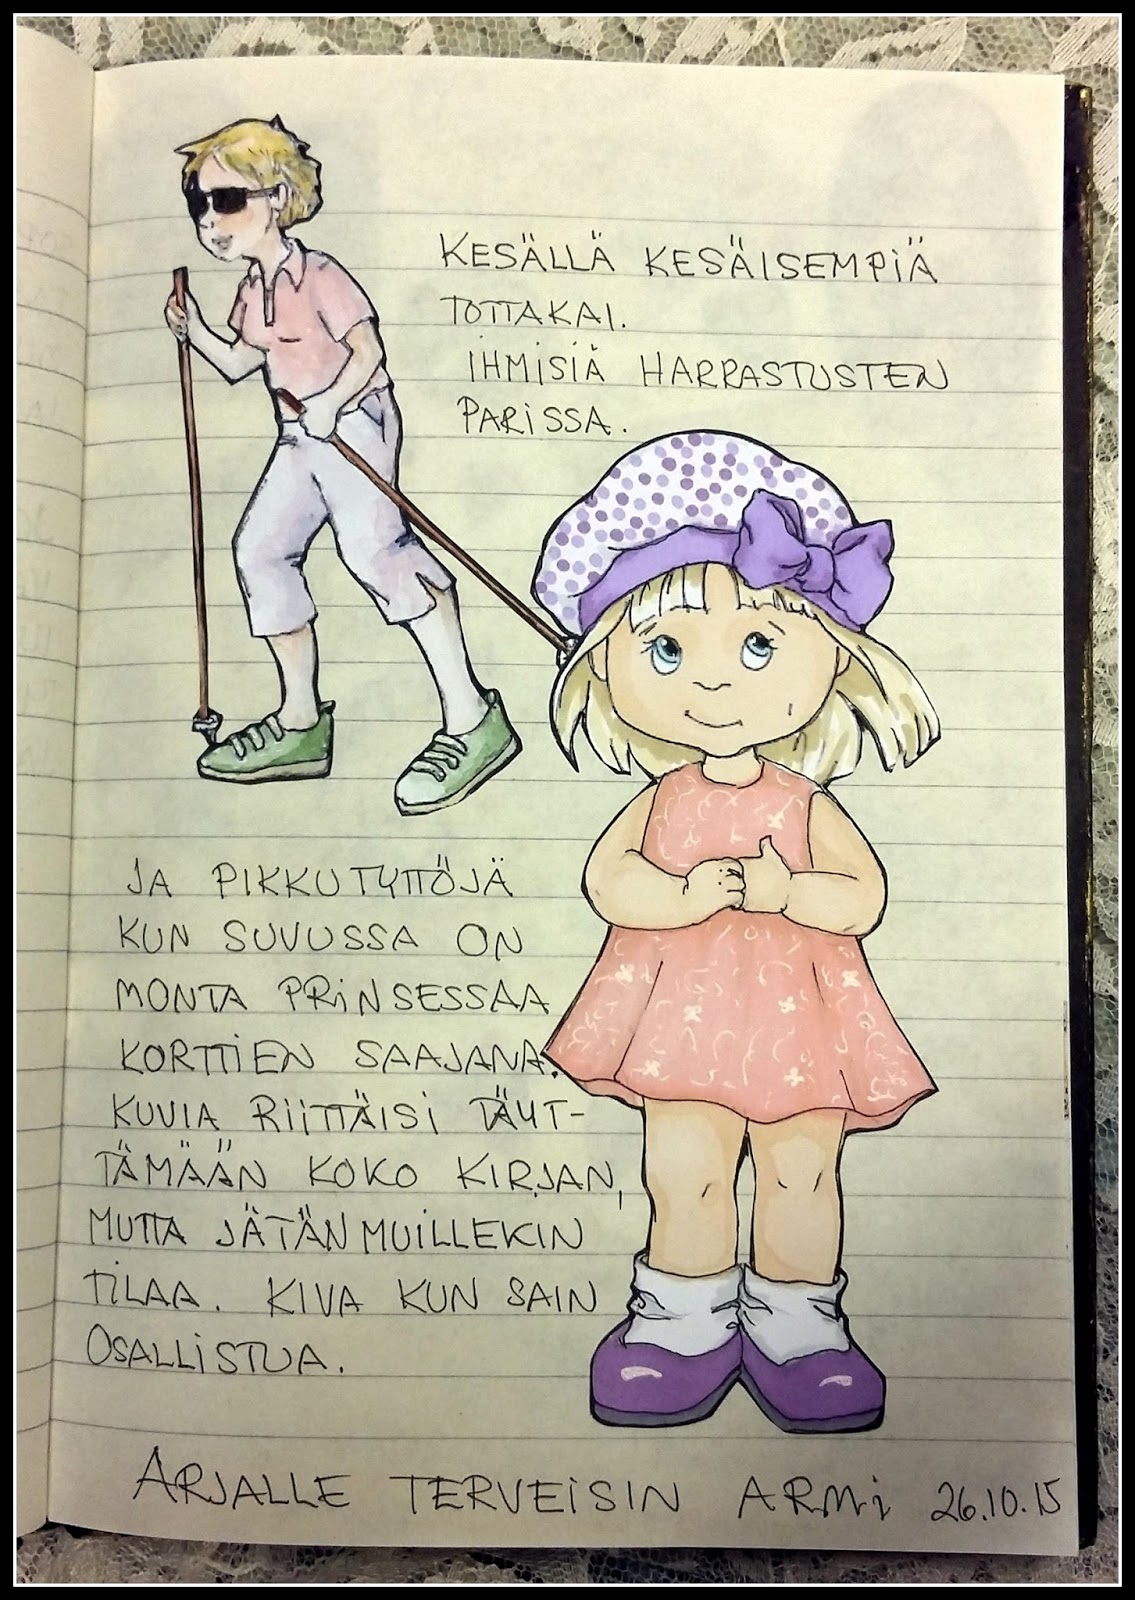 KESÄLLÄ KESÄISEMPIÄ
TOTTAKAI.
IHMISIÄ HARRASTUSTEN
PARISSA.
JA PIKKUTYTTÖJÄ
KUN SUVUSSA ON
MONTA PRINSESSAA
KORTTIEN SAAJANA.
KUVIA RIITTÄISI TÄYT-
TÄMÄÄN KOKO KIRJAN,
MUTTA JÄTÄN MUILLEKIN
TILAA. KIVA KUN SAIN
OSALLISTUA.
ARJALLE TERVEISIN ARMI 26.10.15